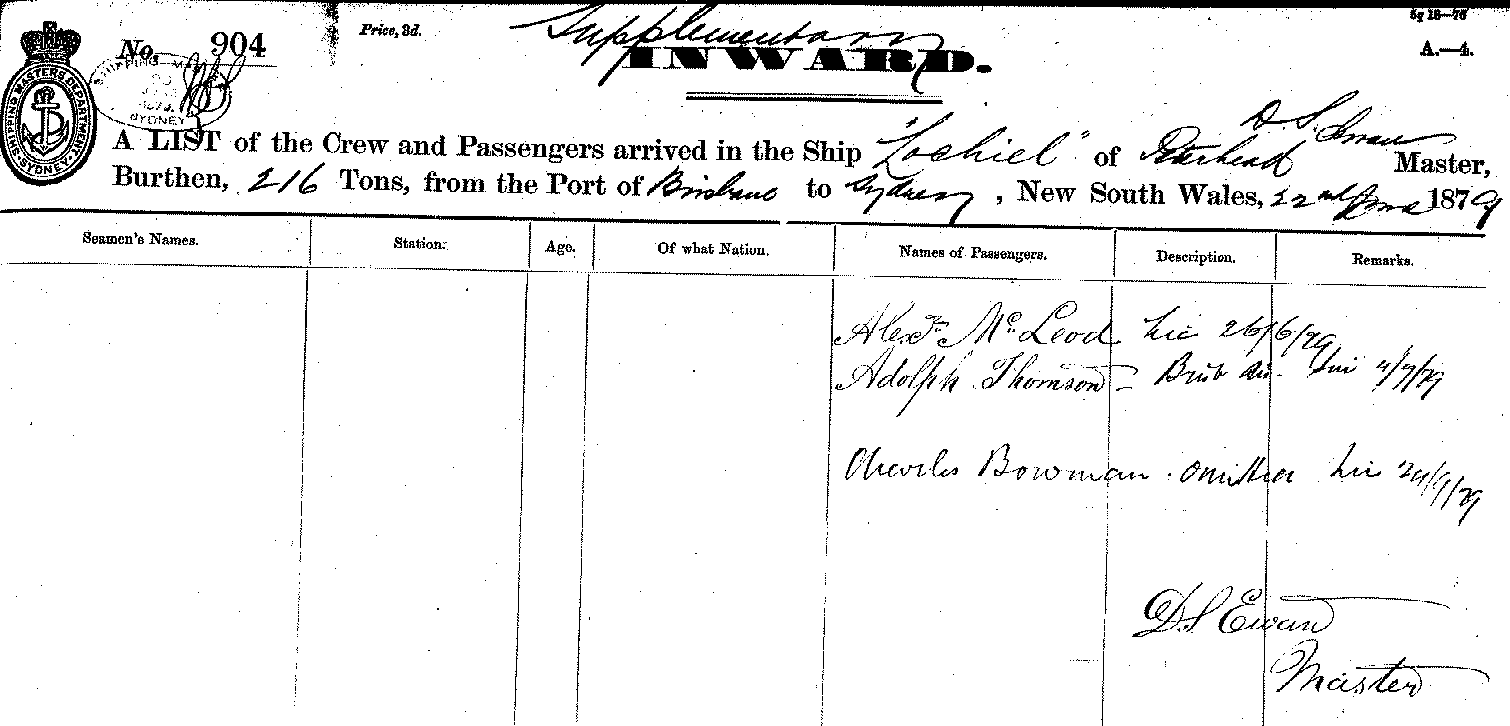 Supplementary
5g 18—76
No. 904
Price, 3d.
INWARD.
A.—4.
SHIPPING MASTERS DEPARTMENT
SYDNEY
SYDNEY
D. S. Ewan
A LIST of the Crew and Passengers arrived in the Ship "Lochiel" of Peterhead Master,
Burthen, 216 Tons, from the Port of Brisbane to Sydney, New South Wales, 22nd 1879
Seamen's Names. Station. Age. Of what Nation. Names of Passengers. Description. Remarks.
Alexr. Mc. Leod Lic 26/6/79
Adolph Thomson
Charles Bowman omitted Lic
D. S. Ewan
Master